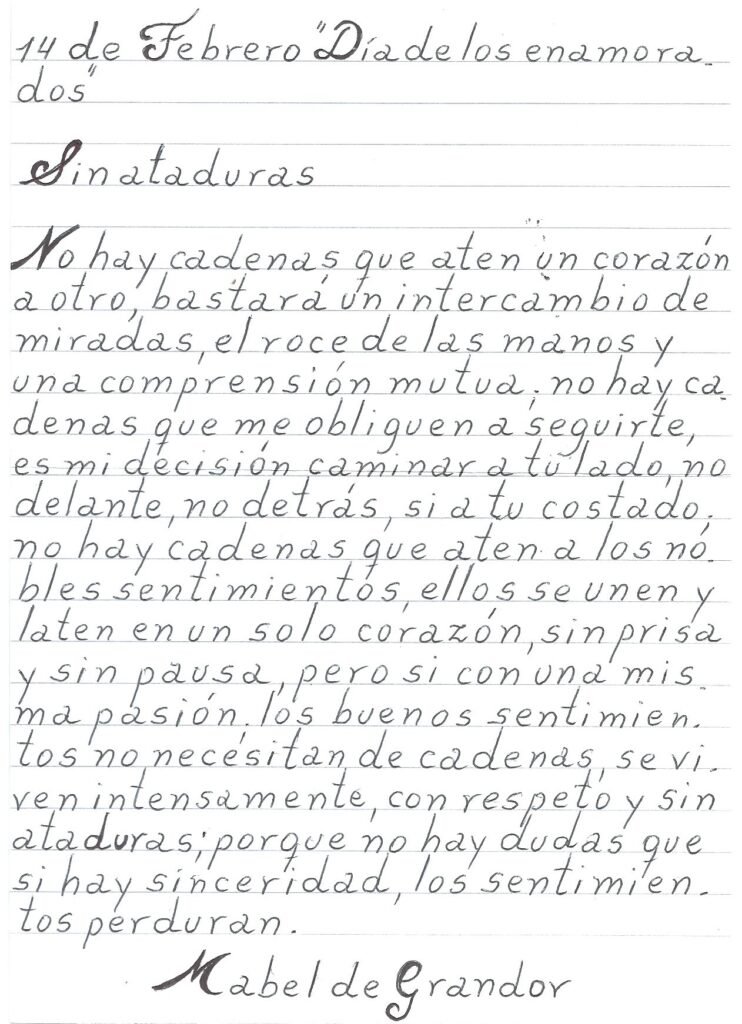 14 de Febrero "Día de los enamora-
dos"
Sin ataduras
No hay cadenas que aten un corazón
a otro, bastará un intercambio de
miradas, el roce de las manos y
una comprensión mutua; no hay ca-
denas que me obliguen a seguirte,
es mi decisión caminar a tu lado, no
delante, no detrás, si a tu costado;
no hay cadenas que aten a los no-
bles sentimientos, ellos se unen y
laten en un solo corazón, sin prisa
y sin pausa, pero si con una mis-
ma pasión. los buenos sentimien-
tos no necesitan de cadenas, se vi-
ven intensamente, con respeto y sin
ataduras; porque no hay dudas que
si hay sinceridad, los sentimien-
tos perduran.
Mabel de Grandor